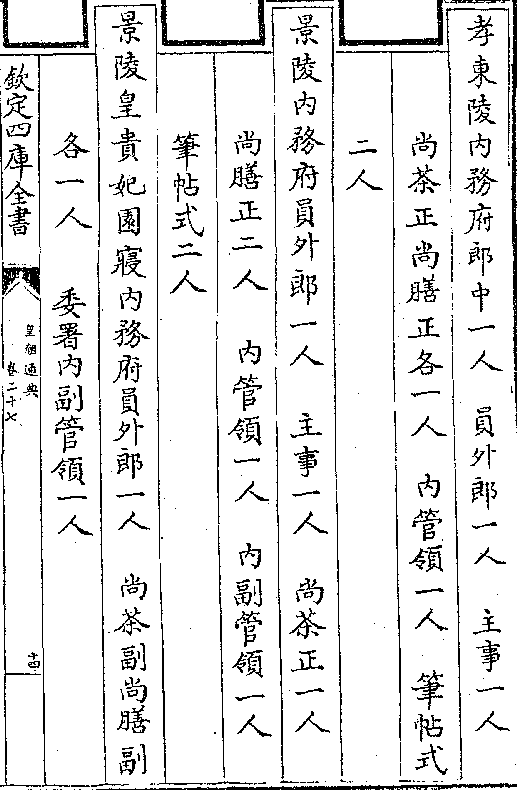 孝東陵内務府郎中一人　員外郎一人　主事一人
尚茶正尚膳正各一人　内管領一人　筆帖式
二人
景陵内務府員外郎一人　主事一人　尚茶正一人
尚膳正二人　内管領一人　内副管領一人
筆帖式二人
景陵皇貴妃園寢内務府員外郎一人　尚茶副尚膳副
各一人　委署内副管領一人
欽定四庫全書
皇朝通典
卷二十七
十四